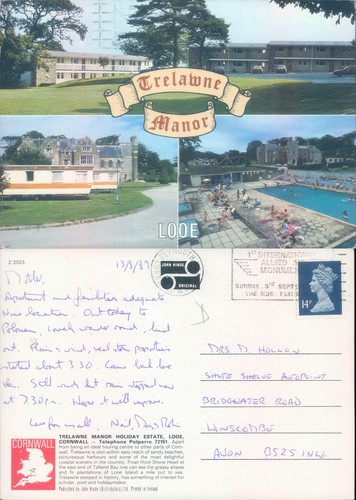 Trelawne
Manor
LOOE
2-2023
13/8/89
1ST INTERNATIONAL
ALLIED
MONUM
SUNDAY 3rd SEPT
14P
Apartment and facilities adequate
Nice location. Out today to
Polperro, lovely wander round, lunch
out.
stated about 3.30. Came back
Still windy but rain stopped now
at 7.30pm. Hope it will improve.
Love from all,
MRS M. HOLLOW
SHUTE SHELVE
BRIDGWATER ROAD
WINSCOMBE
AVON BS25
CORNWALL
TRELAWNE MANOR HOLIDAY ESTATE, LOOE,
CORNWALL - Telephone Polperro 72151. Apart
from being an ideal touring centre to other parts of Corn-
wall, Trelawne is also within easy reach of sandy beaches,
picturesque harbours and some of the most delightful
coastal scenery in the country. From Hore Stone Head at
the east end of Talland Bay one can see the grassy shores
and fir plantations of Looe Island a mile out to sea.
Trelawne steeped in history, has something of interest for
scholar, poet and holidaymaker.
Published by John Hinde (Distributors) Ltd. Printed in Ireland